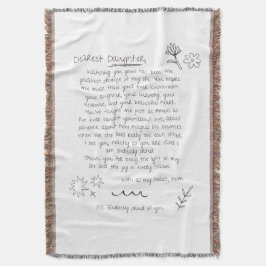 Dearest Daughter,
Watching you grow has been the
greatest honor of my life. You inspire
me more than you'll ever know with
your laughter, your curiosity, your
kindness, and your beautiful heart.
You've taught me just as much as
I've ever taught you about love, about
patience, about how magical life becomes
when we stop and really see each other.
I see you exactly as you are and I
am endlessly proud.
Thank you for being the light in my
life and the joy in every room.
with all my heart, mom
P.S. Endlessly proud of you